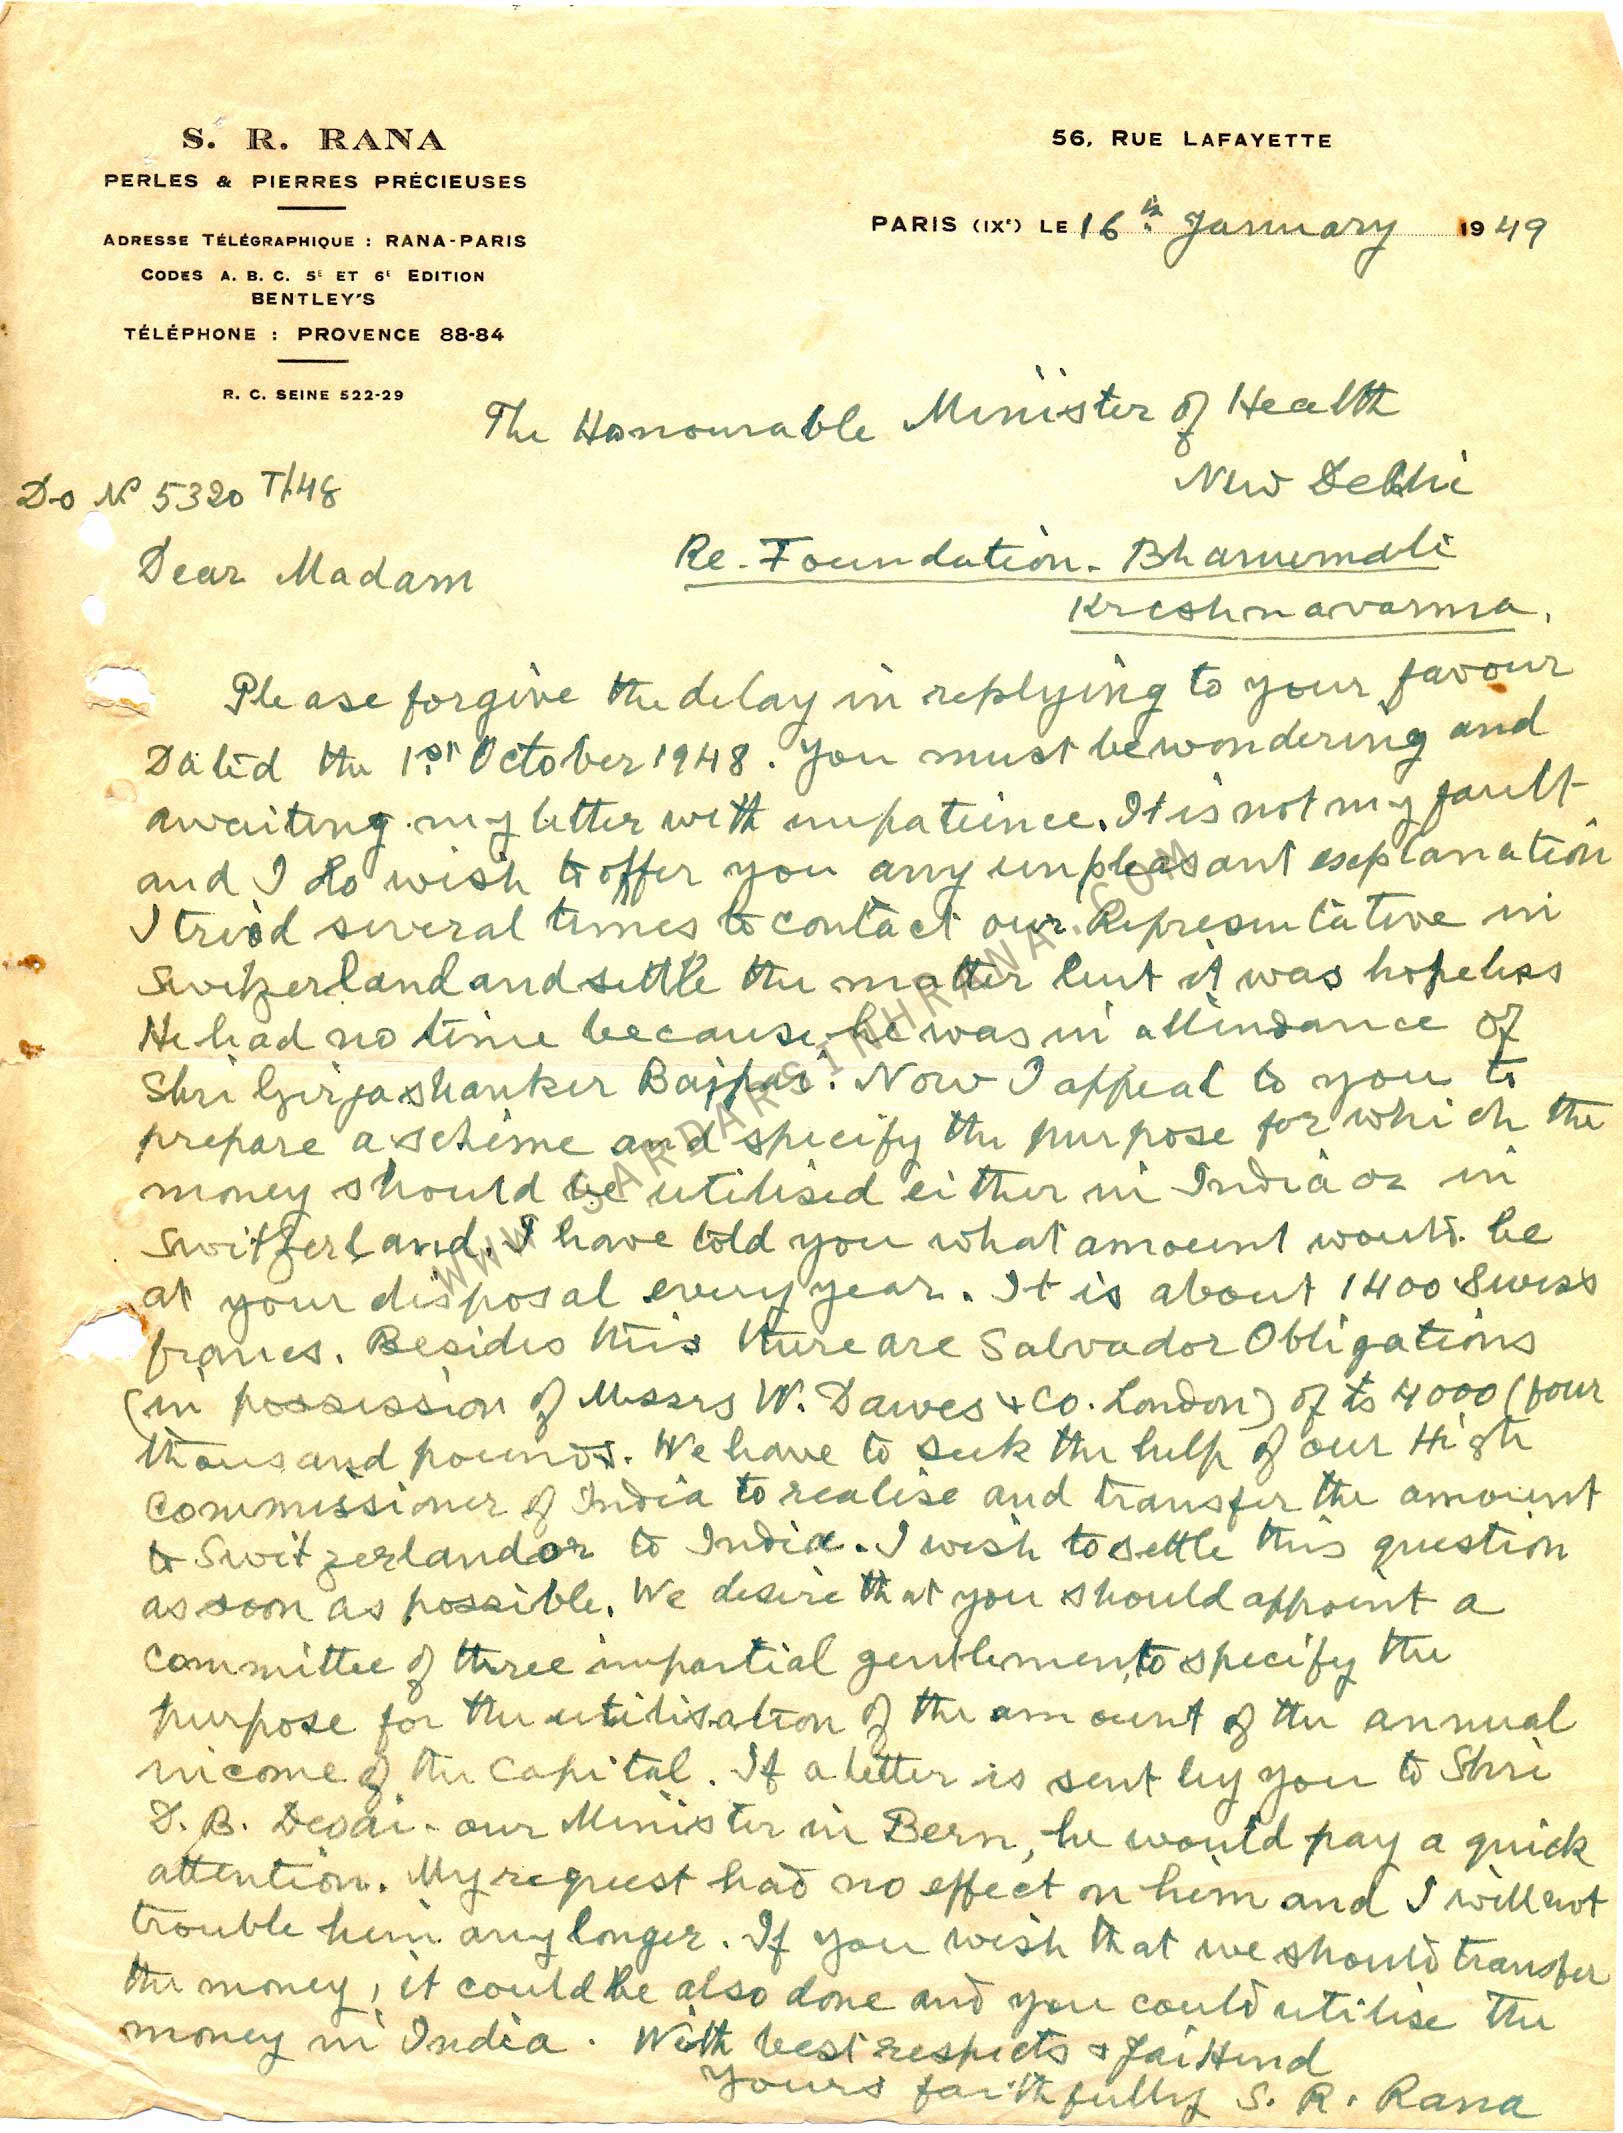 S. R. RANA
PERLES & PIERRES PRÉCIEUSES
ADRESSE TÉLÉGRAPHIQUE : RANA-PARIS
CODES A. B. C. 5ᴱ ET 6ᴱ EDITION
BENTLEY'S
TÉLÉPHONE : PROVENCE 88-84
R. C. SEINE 522-29
56, RUE LAFAYETTE
PARIS (IXᵉ) LE 16th January 1949
The Honourable Minister of Health
New Delhi
D.o Nº 5320 T/48
Re. Foundation - Bhanumati
Krishnavarma.
Dear Madam
Please forgive the delay in replying to your favour
Dated the 1st October 1948. You must be wondering and
awaiting my letter with impatience. It is not my fault
and I do wish to offer you any unpleasant explanation
I tried several times to contact our Representative in
Switzerland and settle the matter but it was hopeless
He had no time because he was in attendance of
Shri Girjashanker Bajpai. Now I appeal to you to
prepare a scheme and specify the purpose for which the
money should be utilised either in India or in
Switzerland. I have told you what amount would be
at your disposal every year. It is about 1400 Swiss
francs. Besides this there are Salvador Obligations
(in possession of Messrs W. Dawes & Co. London) of 4000 (four
thousand pounds. We have to seek the help of our High
Commissioner of India to realise and transfer the amount
to Switzerland or to India. I wish to settle this question
as soon as possible. We desire that you should appoint a
Committee of three impartial gentlemen, to specify the
purpose for the utilisation of the amount of the annual
income of the Capital. If a letter is sent by you to Shri
D. B. Desai - our Minister in Bern, he would pay a quick
attention. My request had no effect on him and I will not
trouble him any longer. If you wish that we should transfer
the money, it could be also done and you could utilise the
money in India. With best respects & Jai Hind
Yours faithfully S. R. Rana
WWW.SARDARSINHRANA.COM